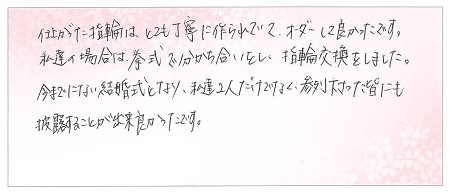 仕上がた指輪はとても丁寧に作られていて、オーダーして良かったです。
私達の場合は、挙式で分かち合いをし、指輪交換をしました。
今までにない結婚式となり、私達2人だけでなく、参列下さった皆にも
披露することが出来良かったです。